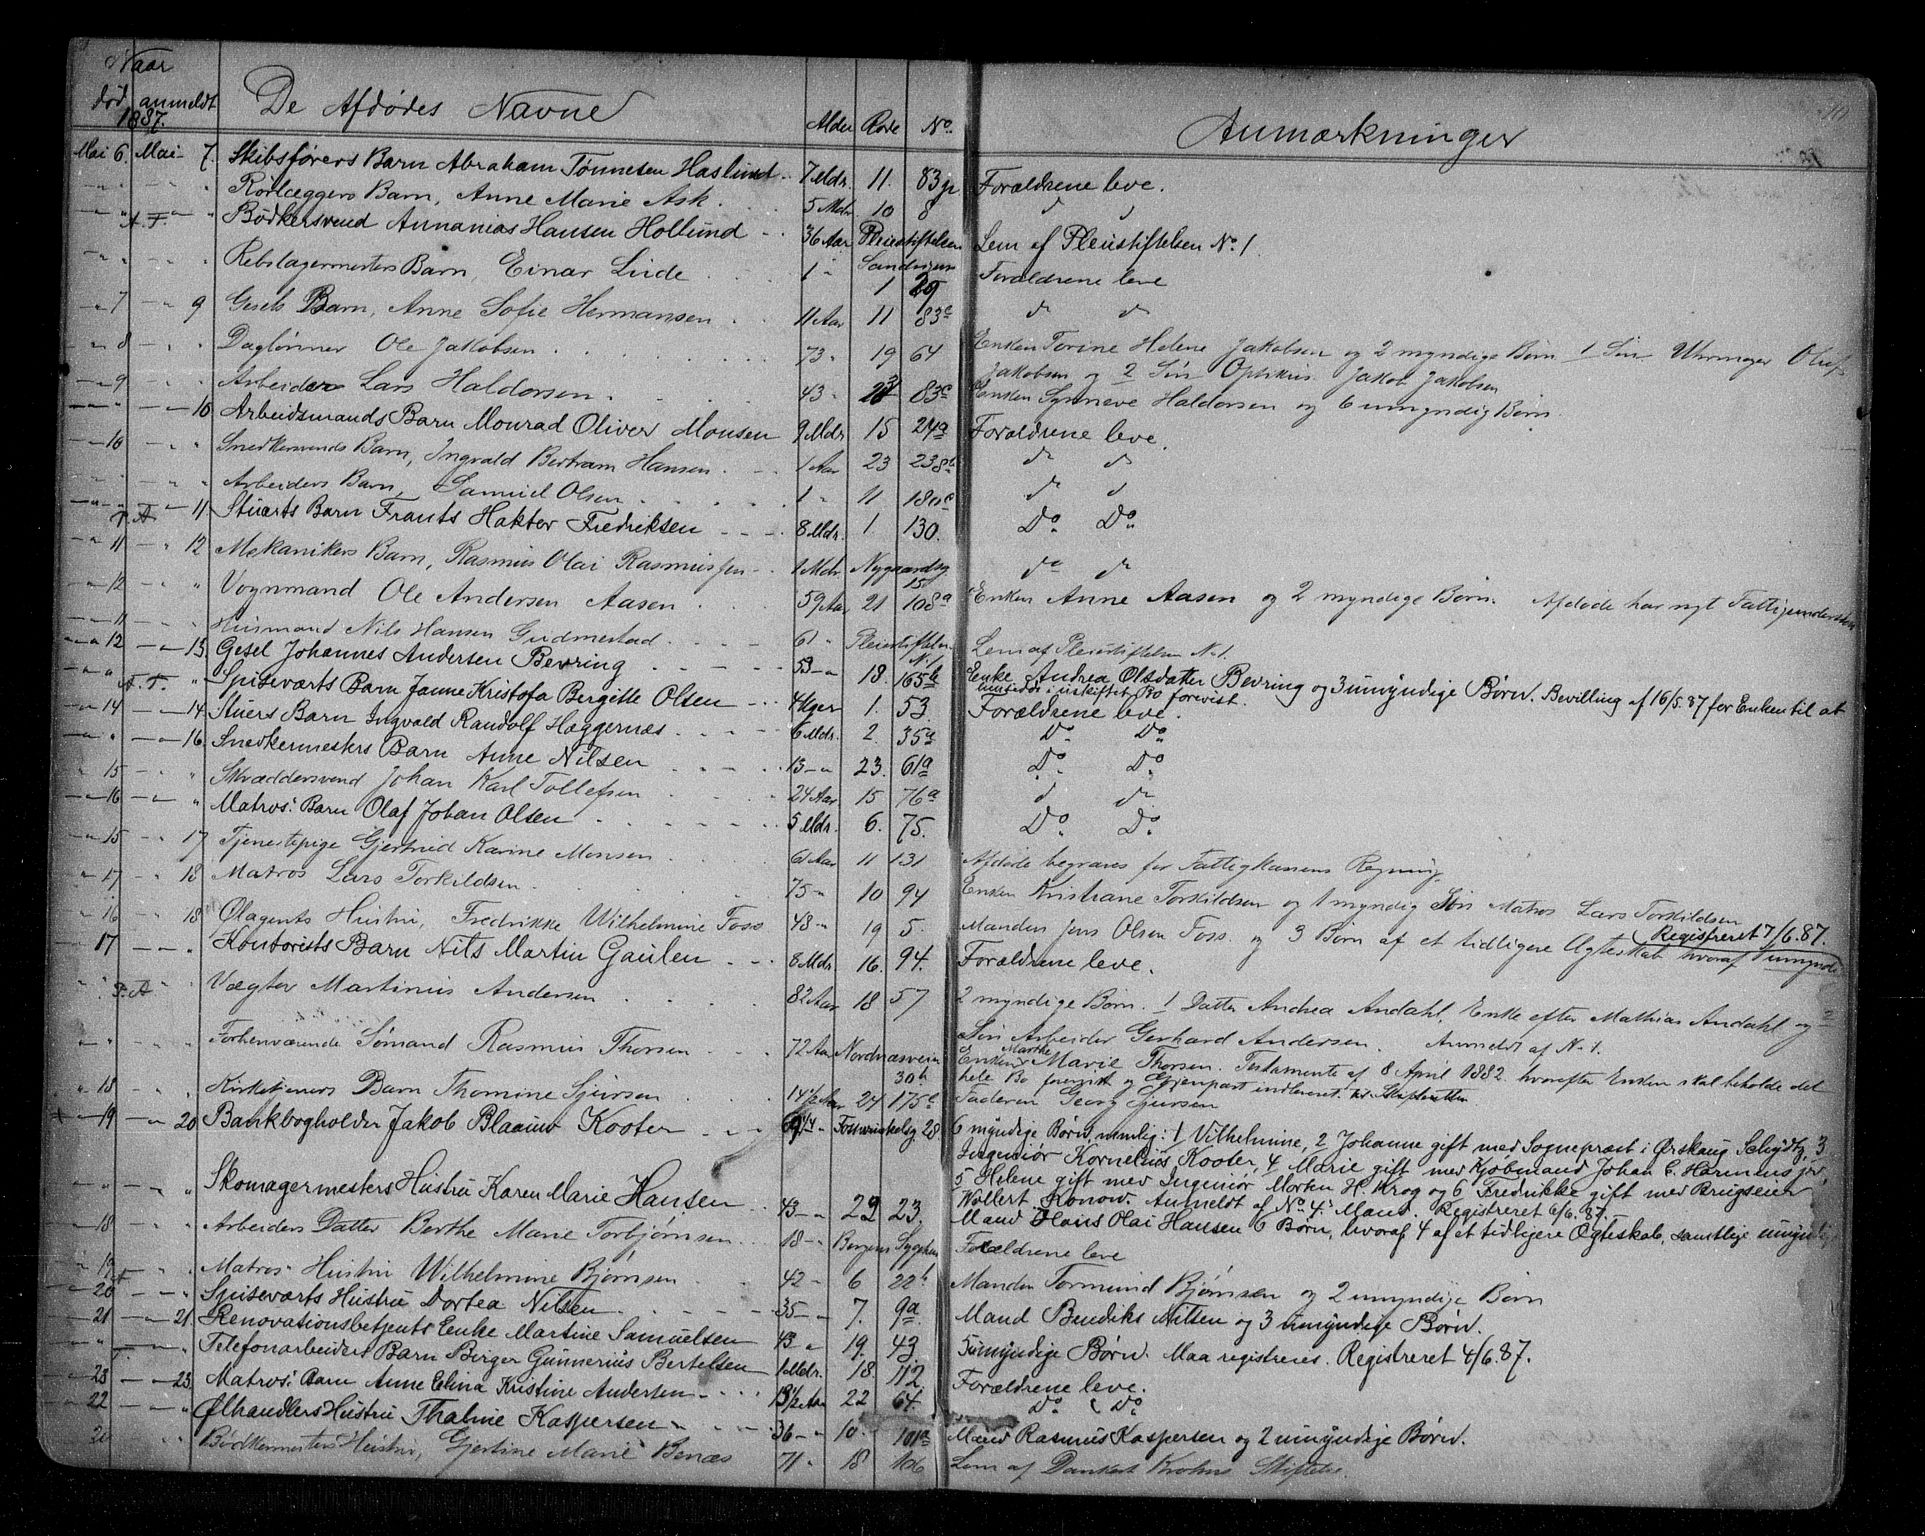 Naar
død anmeldt De Afdødes Navne Alder Rode No. Anmærkninger
1887.
Mai 6. Mai 7. Skibsførers Barn Abraham Tønnesen Haslund 7 Mdr. 11. 83 Forældrene leve.
" — " Rørlæggers Barn, Anne Marie Ask. 5 Mdr 10 8 do do
" — " Bødkersvend Annanias Hansen Hollund 36 Aar Pleiestiftelsen Lem af Pleiestiftelsen No. 1.
" — " Rebslagermesters Barn, Einar Linde 1 " Sandvigen 1 29 Forældrene leve
" 7 — " 9 Gesels Barn, Anne Sofie Hermansen 11 Aar 11 83c do do
" 8 — " Daglønner Ole Jakobsen 73 " 19 64 Enken Torine Helene Jakobsen og 2 myndige Børn 1 Søn Uhrmager Oluf
Jakobsen og 2 Søn Optikus Jakob Jakobsen
" 9 — " Arbeider Lars Haldorsen 43 " 23 83c Enken Synneve Haldorsen og 6 umyndig Børn.
" — " 10 Arbeidsmands Barn Monrad Oliver Monsen 9 Mdr. 15 24a Forældrene leve.
" 10 — " Snedkersvends Barn, Ingvald Bertram Hansen 1 Aar 23 238b do do
" — " Arbeiders Barn, Samuel Olsen 1 " 11 180c do do
" — " 11. Stuerts Barn Frants Hakter Fredriksen 8 Mdr. 1. 130. Do Do
" 11 — " 12 Mekanikers Barn, Rasmus Olai Rasmussen 1 Mdr Nygaardsg 15 do do
" 12 — " Vognmand Ole Andersen Aasen 59 Aar 21 108a Enken Anne Aasen og 2 myndige Børn. Afdøde har nyt Fattigunderstøt
" 11 — " Husmand Nils Hansen Gudmestad 61 " Pleiestiftelsen N. 1. Lem af Pleiestiftelsen N. 1.
" 12 — " 13. Gesel Johannes Andersen Bevring 53 — " 18. 165b Enke Andrea Olsdatter Bevring og 3 umyndige Børn. Bevilling af 16/5.87 for Enken til at
hensidde i uskiftet Bo forevist.
" A. F. " Spiseværts Barn Janne Kristofa Bergitte Olsen 4 Uger 1. 53. Forældrene leve.
" 14 — " 14. Stuers Barn Ingvald Randolf Hæggernæs 6 Mdr. 2. 35a Do Do
" — " 16. Snedkermesters Barn Anne Nilsen 13 — " 23. 61a Do. Do.
" 15 — " Skræddersvend Johan Karl Tollefsen 24 Aar 15 76a do do
" 16 — " Matros: Barn Olaf Johan Olsen 5 Mdr. 6. 75. Do. Do.
" 15 — " 17 Tjenestepige Gjertrud Karine Monsen 61 Aar 11 131 Afdøde begraves for Fattigkassens Regning.
" 17 — " 18 Matros Lars Torkildsen 75 — " 10 94 Enken Kristiane Torkildsen og 1 myndig Søn Matros Lars Torkildsen
" 16 — " 18. Ølagents Hustru, Fredrikke Wilhelmine Foss 48 — " 19 5. Manden Jens Olsen Foss. og 3 Børn af et tidligere Ægteskab hvoraf 1 umyndi
(Registreret 7/6.87.
" 17 — " Kontorists Barn Nils Martin Gaulen 8 Mdr. 16. 94. Forældrene leve.
" — " Vægter Martinus Andersen 82 Aar 18 57 2 myndige Børn. 1 Datter Andrea Andahl, Enke efter Mathias Andahl og 2
Søn Arbeider Gerhard Andersen. Anmeldt af N. 1.
" — " Forhenværende Sømand Rasmus Thorsen 72 Aar Nordnæsveien 30b Enken Marthe Marie Thorsen. Testamente af 8 April 1882 hvorefter Enken skal beholde det
hele Bo forevist og Gjenpart indleveret til Skifteretten
" 18 — " Kirketjeners Barn Thomine Sjursen 14 1/2 Aar 24 175c Faderen Georg Sjursen
" 19 — " 20 Bankbogholder Jakob Blaauw Kooter 28 6 myndige Børn, nemlig: 1 Vilhelmine, 2 Johanne gift med Sognepræst i Ørskaug Schydtz, 3
Ingeniør Kornelius Kooter, 4 Marie gift med Kjøbmand Johan C. Harmens,
5 Helene gift med Ingeniør Morten H. Krog og 6 Fredrikke gift med Brugseier
Wollert Konow. Anmeldt af No. 4. Mand. Registreret 6/6.87.
" — " Skomagermesters Hustru Karen Marie Hansen 43 — " 22 23. Mand Hans Olai Hansen 6 Børn, hvoraf 4 af et tidligere Ægteskab, samtlige umyndig
" 18 — " Arbeiders Datter Berthe Marie Torbjørnsen 18 — " Bergens Sygehus Forældrene leve
" 19 — " Matros Hustru Wilhelmine Bjørnsen 42 — " 6 22b Manden Tormund Bjørnsen og 2 umyndige Børn
" 20 — " Spiseværts Hustru Dortea Nilsen 35 — " 7. 9a. Mand Bendiks Nilsen og 3 umyndige Børn.
" 21 — " 21. Renovationsbetjents Enke Martine Samuelsen 43 " 19. 43 5 umyndige Børn. Maa registreres. Registreret 4/6.87.
" — " Telefonarbeiders Barn Birger Gunnerius Bertelsen 1 Mdr. 18. 112 Forældrene leve.
" 23 — " 23. Matros: Barn Anne Elina Kristine Andersen 13 1/2 Aar 22 64. Do. Do.
" 22 — " Ølhandlers Hustru Thaline Kaspersen 36 — " 10. 101a Mand Rasmus Kaspersen og 2 umyndige Børn.
20 " Bødkermesters Hustru, Gjertine Marie Benæs 71 " 18 106 Lem af Dankert Krohns Stiftelse.